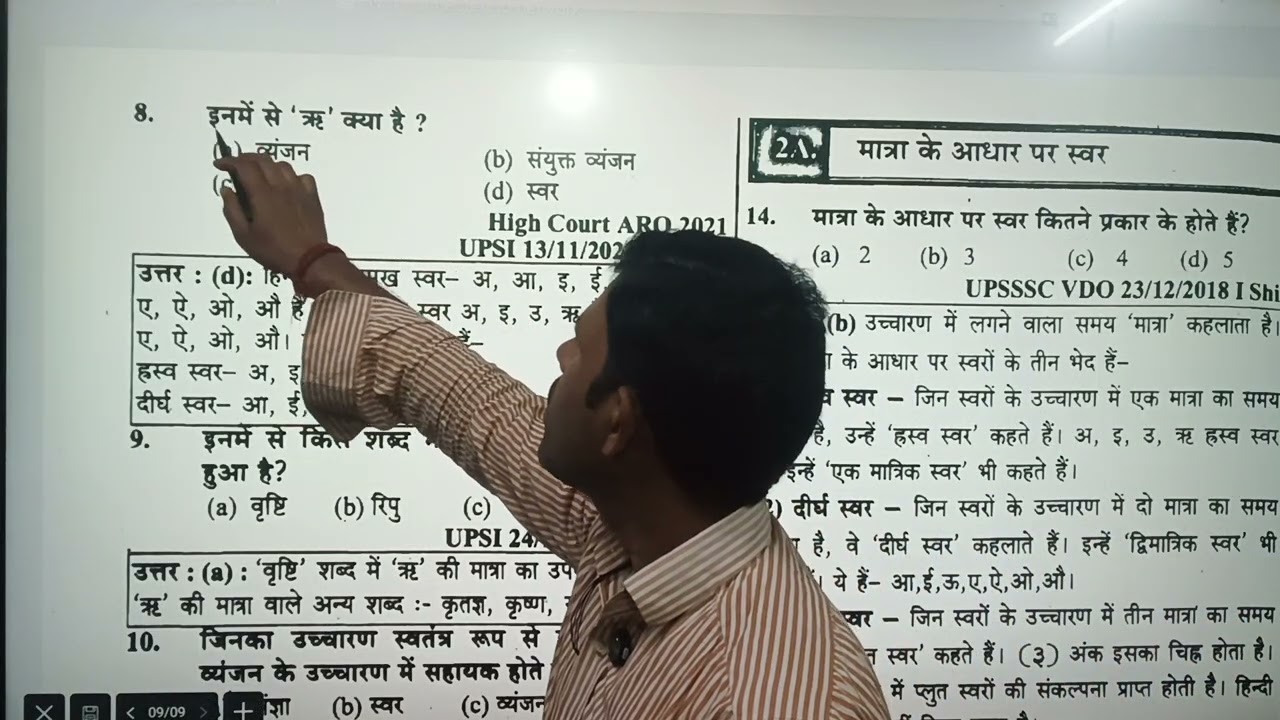 8. इनमें से 'ऋ' क्या है ?
व्यंजन
(b) संयुक्त व्यंजन
(d) स्वर
High Court ARO 2021
UPSI 13/11/202
उत्तर : (d): स्वर– अ, आ, इ, ई,
ए, ऐ, ओ, औ स्वर अ, इ, उ, ऋ
ए, ऐ, ओ, औ। हैं–
ह्रस्व स्वर– अ, इ
दीर्घ स्वर– आ, ई,
9. इनमें से किस शब्द
हुआ है?
(a) वृष्टि (b) रिपु (c)
UPSI 24
उत्तर : (a) : 'वृष्टि' शब्द में 'ऋ' की मात्रा का
'ऋ' की मात्रा वाले अन्य शब्द :- कृतज्ञ, कृष्ण,
10. जिनका उच्चारण स्वतंत्र रूप से
व्यंजन के उच्चारण में सहायक होते
(b) स्वर (c) व्यंजन
09/09
2A. मात्रा के आधार पर स्वर
14. मात्रा के आधार पर स्वर कितने प्रकार के होते हैं?
(a) 2 (b) 3 (c) 4 (d) 5
UPSSSC VDO 23/12/2018 I Shi
(b) उच्चारण में लगने वाला समय 'मात्रा' कहलाता है।
के आधार पर स्वरों के तीन भेद हैं–
स्वर – जिन स्वरों के उच्चारण में एक मात्रा का समय
है, उन्हें 'ह्रस्व स्वर' कहते हैं। अ, इ, उ, ऋ ह्रस्व स्वर
इन्हें 'एक मात्रिक स्वर' भी कहते हैं।
2) दीर्घ स्वर – जिन स्वरों के उच्चारण में दो मात्रा का समय
है, वे 'दीर्घ स्वर' कहलाते हैं। इन्हें 'द्विमात्रिक स्वर' भी
ये हैं– आ,ई,ऊ,ए,ऐ,ओ,औ।
स्वर – जिन स्वरों के उच्चारण में तीन मात्रा का समय
स्वर' कहते हैं। (३) अंक इसका चिह्न होता है।
में प्लुत स्वरों की संकल्पना प्राप्त होती है। हिन्दी